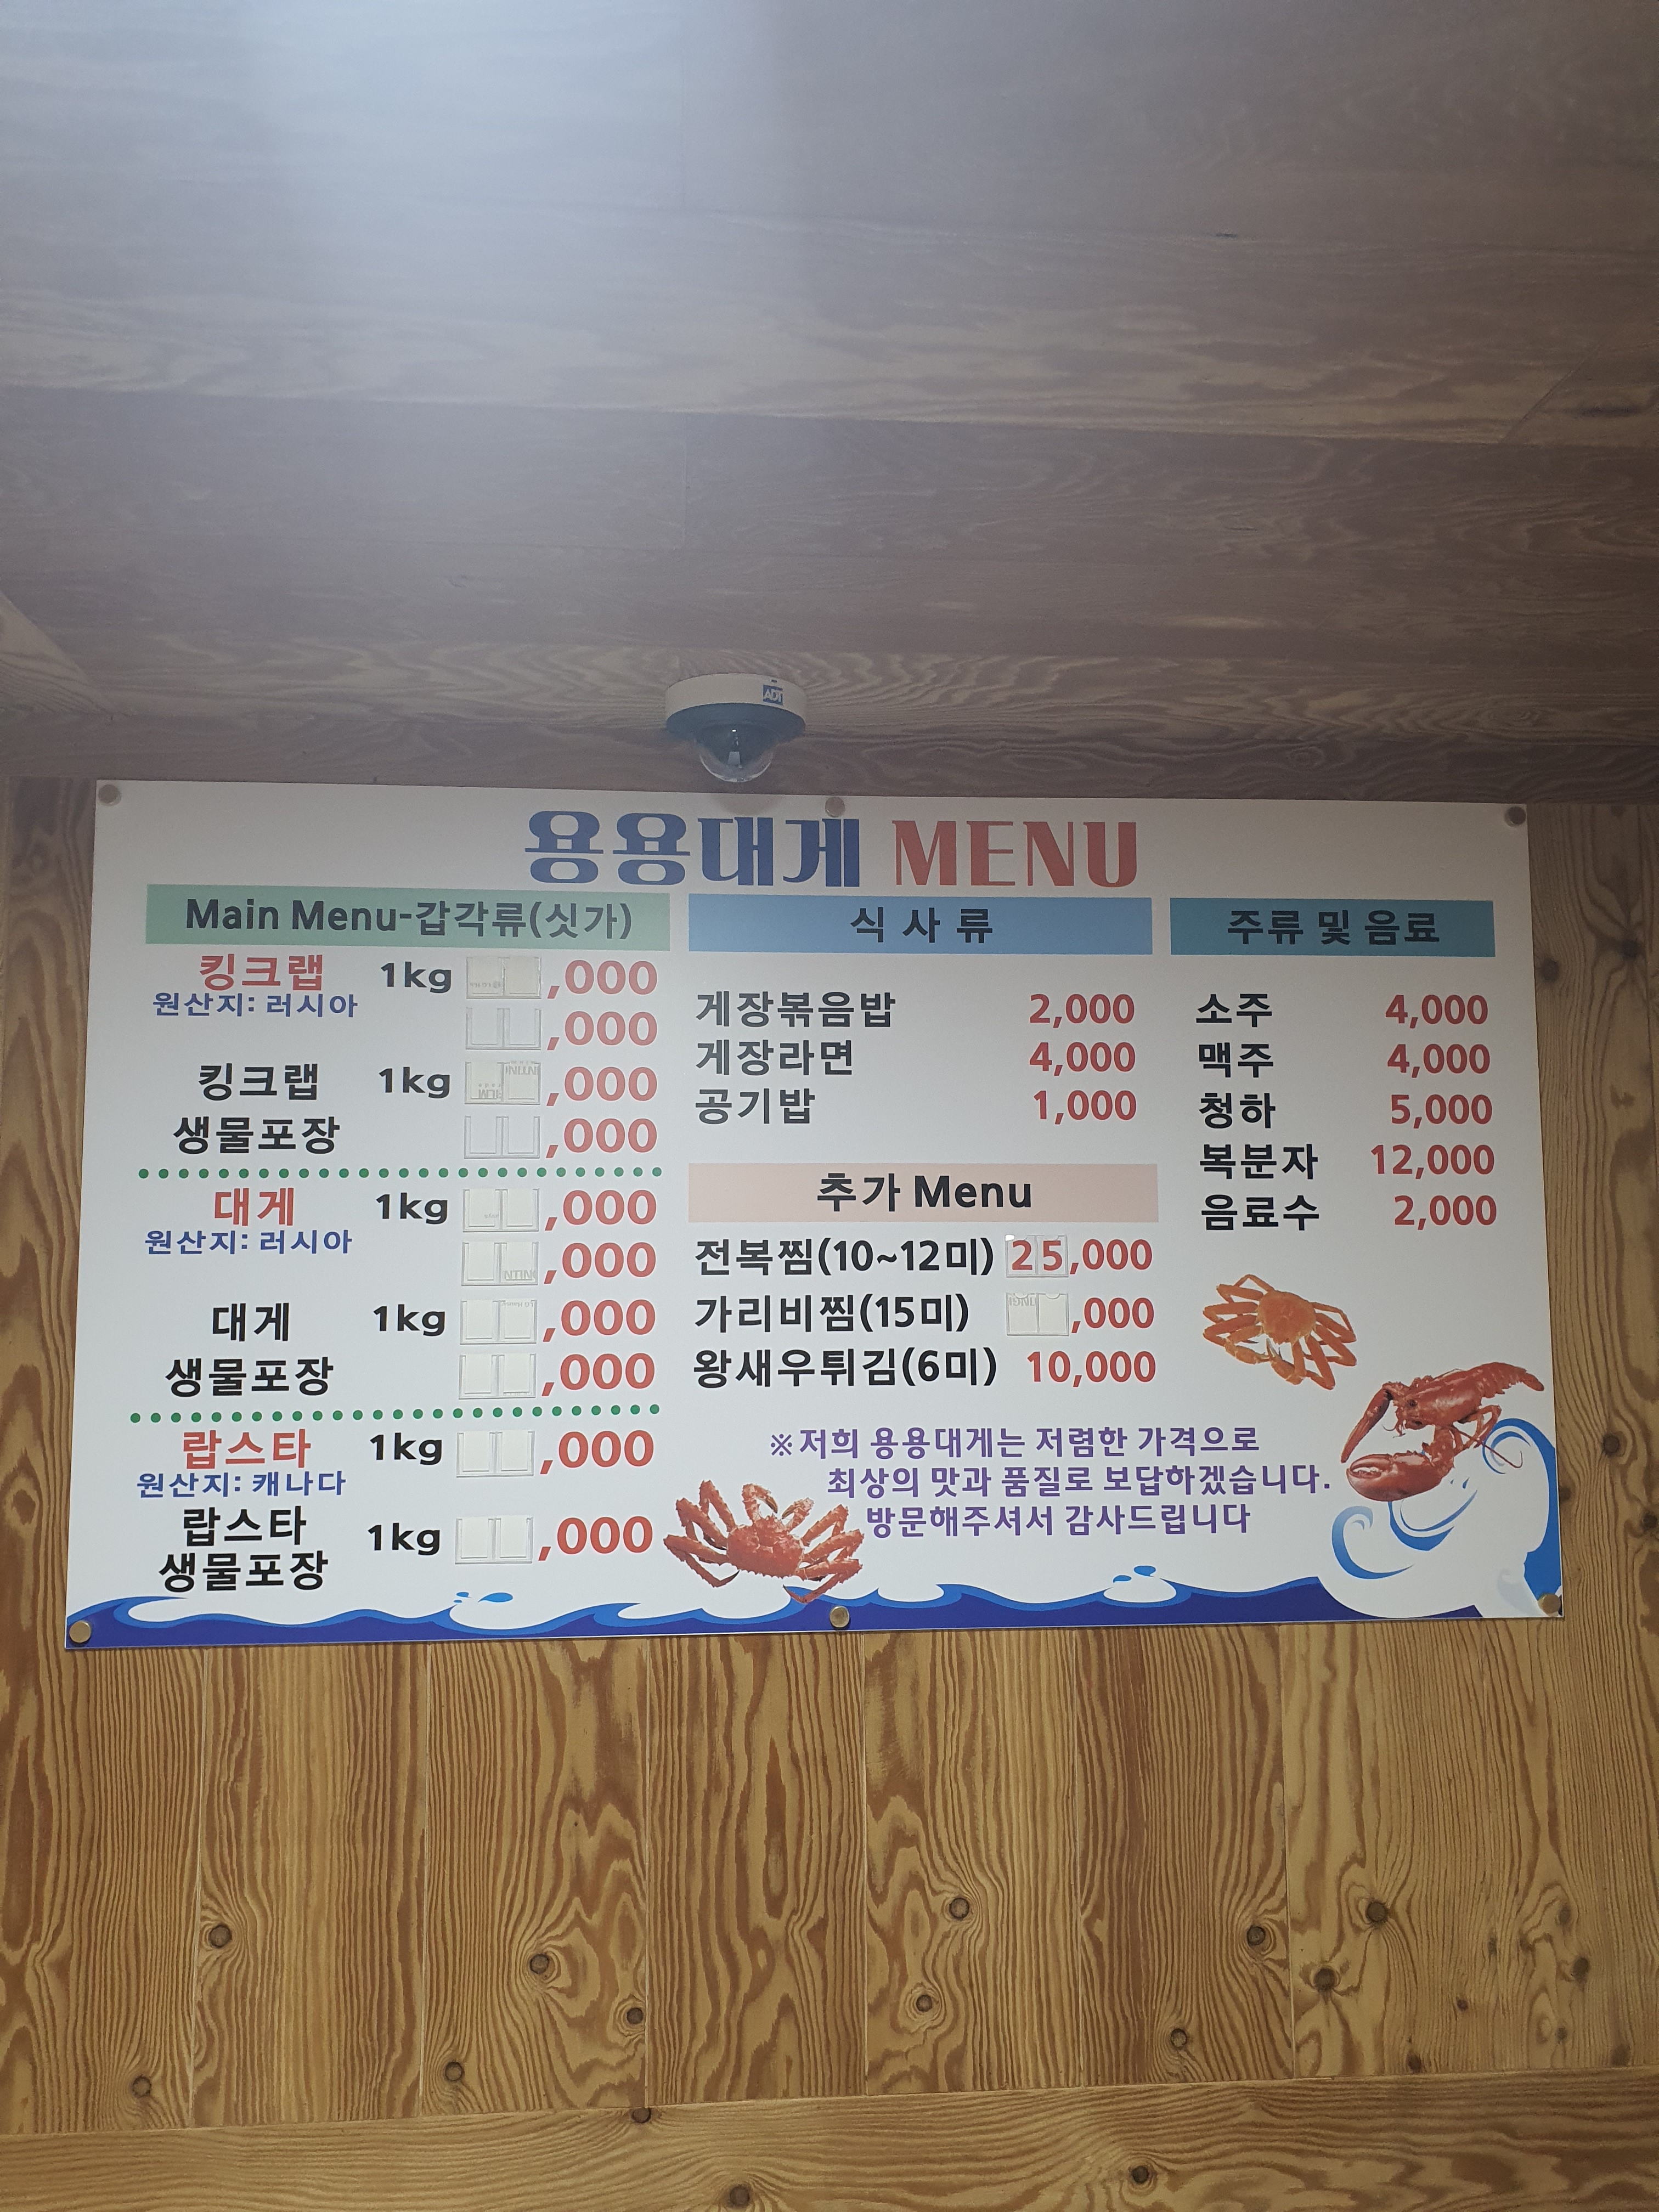 ADT
용용대게 MENU
Main Menu-갑각류(싯가)
킹크랩 1kg ,000
원산지: 러시아
,000
킹크랩 1kg ,000
생물포장 ,000
대게 1kg ,000
원산지: 러시아
,000
대게 1kg ,000
생물포장 ,000
랍스타 1kg ,000
원산지: 캐나다
랍스타
생물포장 1kg ,000
식 사 류
게장볶음밥 2,000
게장라면 4,000
공기밥 1,000
추가 Menu
전복찜(10~12미) 25,000
가리비찜(15미) ,000
왕새우튀김(6미) 10,000
주류 및 음료
소주 4,000
맥주 4,000
청하 5,000
복분자 12,000
음료수 2,000
※저희 용용대게는 저렴한 가격으로
최상의 맛과 품질로 보답하겠습니다.
방문해주셔서 감사드립니다